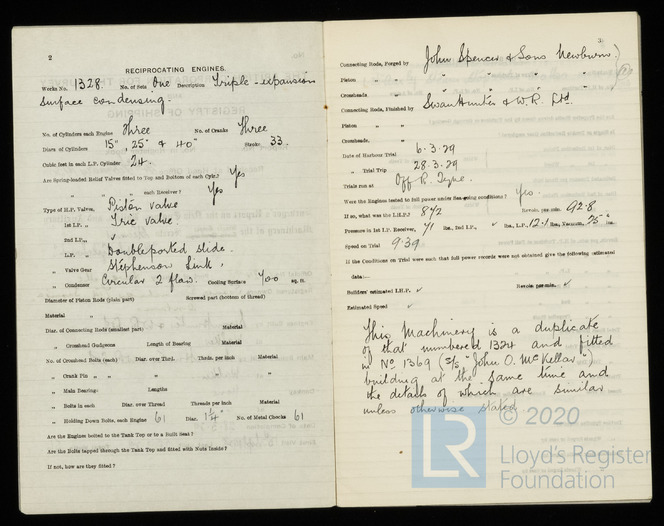 2
RECIPROCATING ENGINES.
Works No. 1328. No. of Sets One Description Triple-expansion
surface condensing.
No. of Cylinders each Engine Three No. of Cranks Three
Diars of Cylinders 15", 25" & 40" Stroke 33.
Cubic feet in each L.P. Cylinder 24.
Are Spring-loaded Relief Valves fitted to Top and Bottom of each Cylr.? Yes
„ „ „ each Receiver? Yes
Type of H.P. Valves, Piston valve
1st I.P. „ Tric valve.
2nd I.P. „ „
L.P. „ Doubleported slide.
„ Valve Gear Stephenson Link,
„ Condenser Circular 2 flow. Cooling Surface 700 sq. ft.
Diameter of Piston Rods (plain part) Screwed part (bottom of thread)
Material „
Diar. of Connecting Rods (smallest part) Material
„ Crosshead Gudgeons Length of Bearing Material
No. of Crosshead Bolts (each) Diar. over Thrd. Thrds. per inch Material
„ Crank Pin „ „ „ „ „
„ Main Bearings Lengths
„ Bolts in each Diar. over Thread Threads per inch Material
„ Holding Down Bolts, each Engine 61 Diar. 1¼" No. of Metal Chocks 61
Are the Engines bolted to the Tank Top or to a Built Seat?
Are the Bolts tapped through the Tank Top and fitted with Nuts Inside?
If not, how are they fitted?
Connecting Rods, Forged by John Spencer & Sons Newburn
Piston „ „
Crossheads „
Connecting Rods, Finished by Swan Hunter & W.R. Ltd.
Piston „ „
Crossheads, „
Date of Harbour Trial 6.3.29
„ Trial Trip 28.3.29
Trials run at Off R. Tyne.
Were the Engines tested to full power under Sea-going conditions? Yes.
If so, what was the I.H.P.? 842 Revols. per min. 92.8
Pressure in 1st I.P. Receiver, 71 lbs., 2nd I.P., ✓ lbs., L.P., 12.1 lbs., Vacuum, 25" ins.
Speed on Trial 9.39
If the Conditions on Trial were such that full power records were not obtained give the following estimated
data:—
Builders' estimated I.H.P. ✓ Revols. per min. ✓
Estimated Speed ✓
This Machinery is a duplicate
of that numbered 1324 and fitted
in No 1369 (S/S "John O. McKellar")
building at the same time and
the details of which are similar
unless otherwise stated
© 2020
LR
Lloyd's Register
Foundation